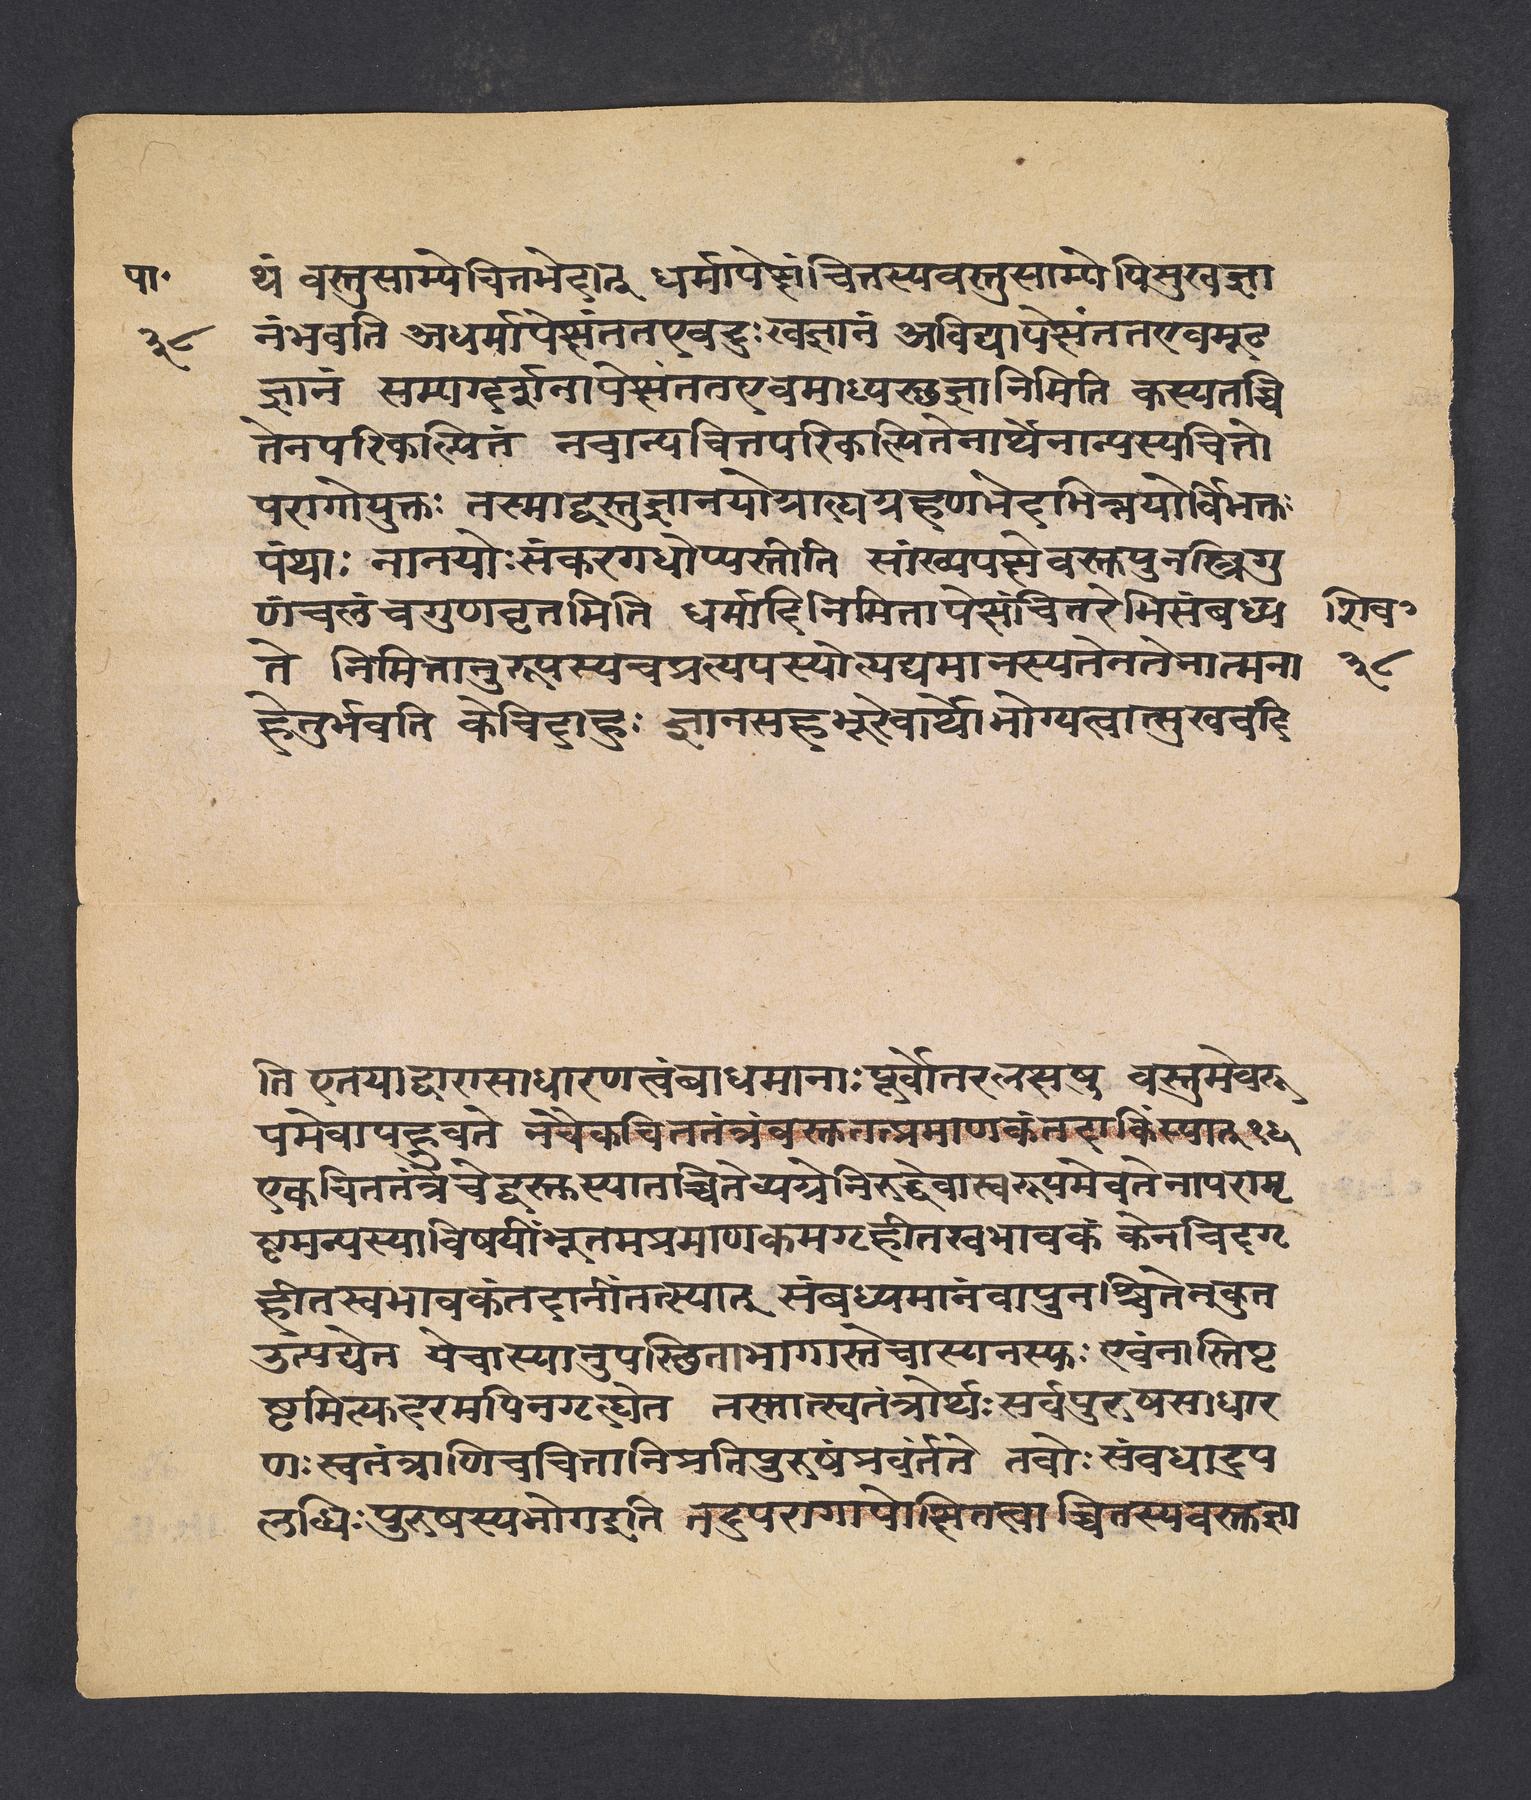 पा॰ थं वस्तुसाम्येचित्तभेदात् धर्मापेक्षंचित्तस्यवस्तुसाम्येपिसुखज्ञा
३८ नंभवति अधर्मापेक्षंततएवदुःखज्ञानं अविद्यापेक्षंततएवमूढ
ज्ञानं सम्यग्दर्शनापेक्षंततएवमाध्यस्छज्ञानमिति कस्यतच्चि
तेनपरिकल्पितं नचान्यचित्तपरिकल्पितेनार्थेनान्यस्यचित्तो
परागोयुक्तः तस्माद्वस्तुज्ञानयोग्राह्यग्रहणभेदभिन्नयोर्विभक्तः
पंथाः नानयोःसंकरगधोप्यस्तीति सांख्यपक्षेवस्तुपुनस्त्रिगु
णंचलंचगुणवृत्तमिति धर्मादिनिमित्तापेक्षंचित्तरेभिसंबध्य शिव॰
ते निमित्तानुरूपस्यचप्रत्ययस्योत्पद्यमानस्यतेनतेनात्मना ३८
हेतुर्भवति केचिदाहुः ज्ञानसहभूरेवार्थोभोग्यत्वात्सुखवदि
ति एतयाद्वारासाधारणत्वंबाधमानाः पूर्वोत्तरलक्षषु वस्तुमेवरू
पमेवापह्नुवते नचैकचित्ततंत्रंवस्तुतत्प्रमाणकंतदाकिंस्यात् १५
एकचित्ततंत्रंचेद्वस्तुस्यातच्चित्तेव्यग्रेनिरुद्देवास्वरूपमेवतेनापरामृ
ष्टमन्यस्याविषयीभूतमप्रमाणकमगृहीतस्वभावकं केनचिदगृ
हीतस्वभावकंतदानींतत्स्यात् संबध्यमानंवापुनश्चित्तेनकुत
उत्पद्येत येचास्यानुपस्छिताभागास्तेचास्यनस्युः एवंनास्तिपृ
ष्टमित्युदरमपिनगृह्येत तस्मात्स्वतंत्रोर्थः सर्वपुरुषसाधार
णः स्वतंत्राणिचचित्तानिप्रतिपुरुषंप्रवर्तंते तयोः संबधादुप
लब्धिः पुरुषस्यभोगइति तदुपरागापेक्षितत्वाच्चित्तस्यवस्तुज्ञा